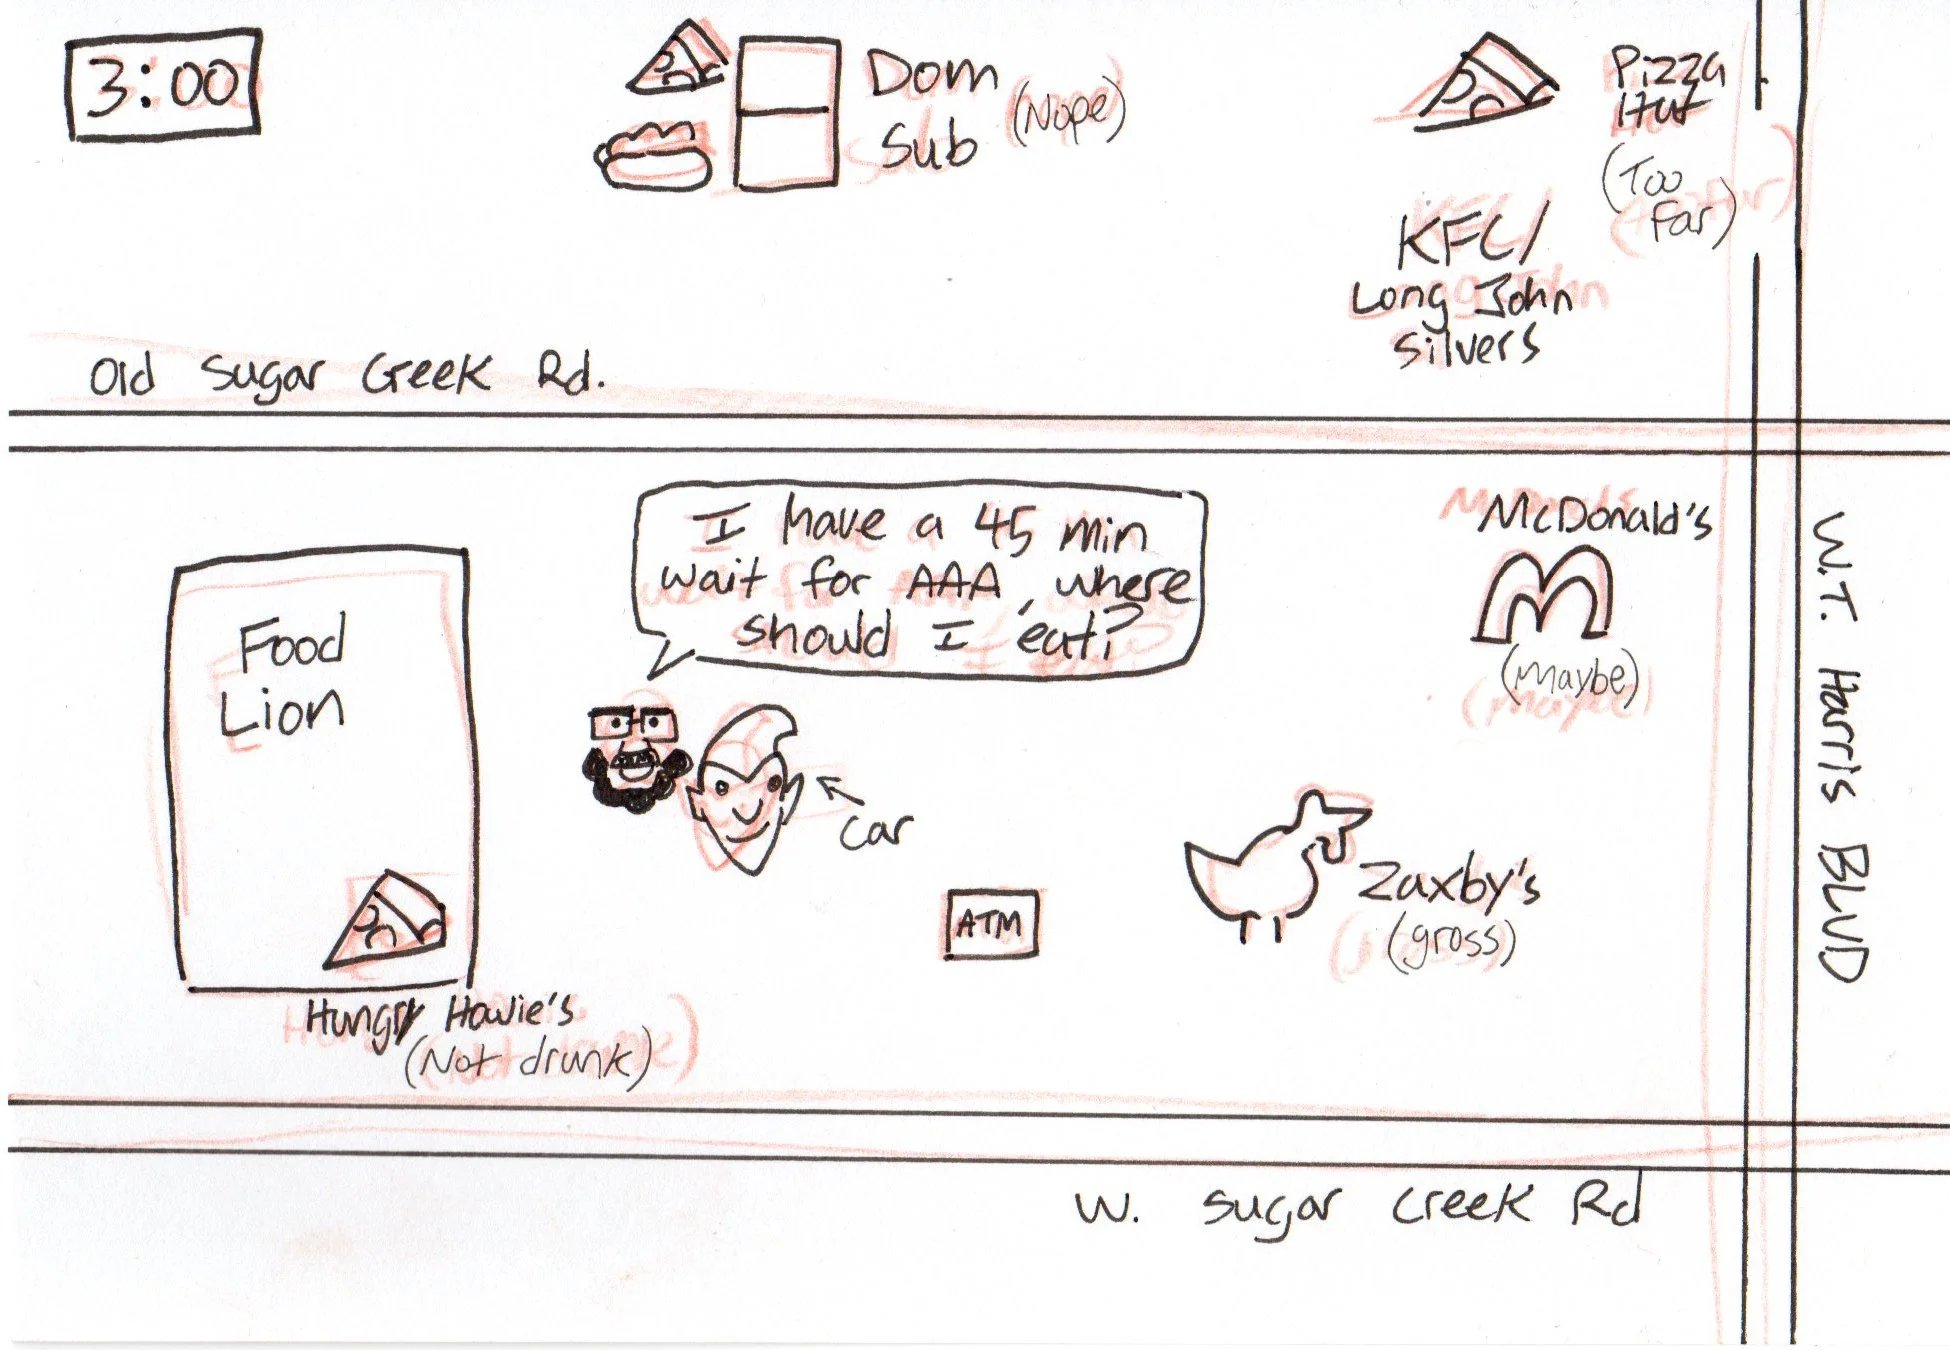 3:00
Dom
Sub
(Nope)
Pizza
Hut
(Too
Far)
KFC/
Long John
Silvers
Old Sugar Creek Rd.
I have a 45 min
wait for AAA, where
should I eat?
McDonald's
(Maybe)
Food
Lion
car
ATM
Zaxby's
(gross)
Hungry Howie's
(Not drunk)
W.T. Harris BLVD
W. Sugar Creek Rd